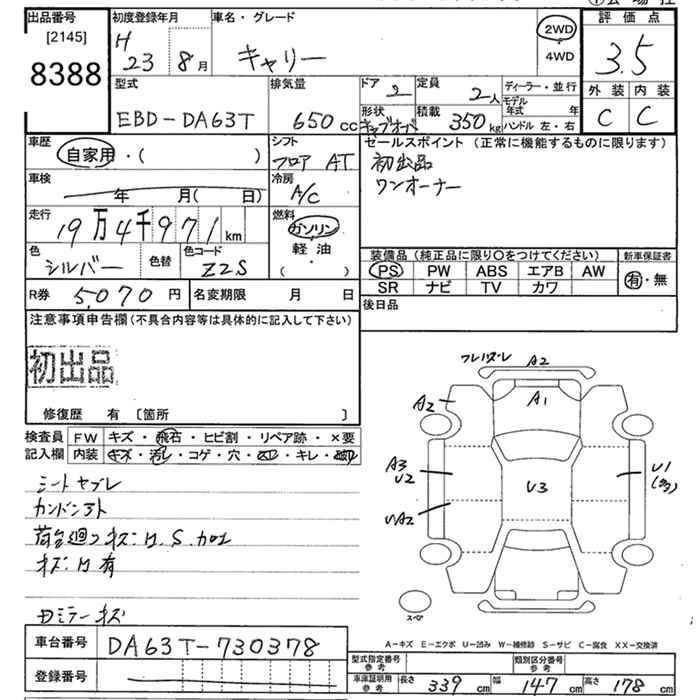 出品番号 初度登録年月 車名・グレード 評価点
[2145] H 2WD
8388 23 8月 キャリー 4WD 3.5
型式 排気量 ドア 2 定員 2人 ディーラー・並行 外装 内装
モデル年式 年
EBD-DA63T 650cc 形状 キャブオーバ 積載 350kg ハンドル 左・右 C C
車歴 自家用・( ) シフト フロア AT セールスポイント (正常に機能するものに限ります)
初出品
ワンオーナー
車検 年 月( 日) 冷房 A/C
走行 19万4千971km 燃料 ガソリン
軽油
( )
色 シルバー 色替 色コード Z2S
装備品 (純正品に限り○をつけてください) 新車保証書
PS PW ABS エアB AW 有・無
SR ナビ TV カワ
R券 5,070円 名変期限 月 日 後日品
注意事項申告欄(不具合内容等は具体的に記入して下さい)
初出品
修復歴 有 〔箇所 〕
検査員記入欄 FW キズ・飛石・ヒビ割・リペア跡・×要
内装 キズ・汚レ・コゲ・穴・スレ・キレ・
シートヤブレ
A2
A2 A1
A3
U2 U3 U1
スペア
A=キズ E=エクボ U=凹み W=補修跡 S=サビ C=腐食 XX=交換済
車台番号 DA63T-730378
登録番号
型式指定番号 参考 類別区分番号 参考
車庫証明用 参考 長さ 339cm 幅 147cm 高さ 178cm